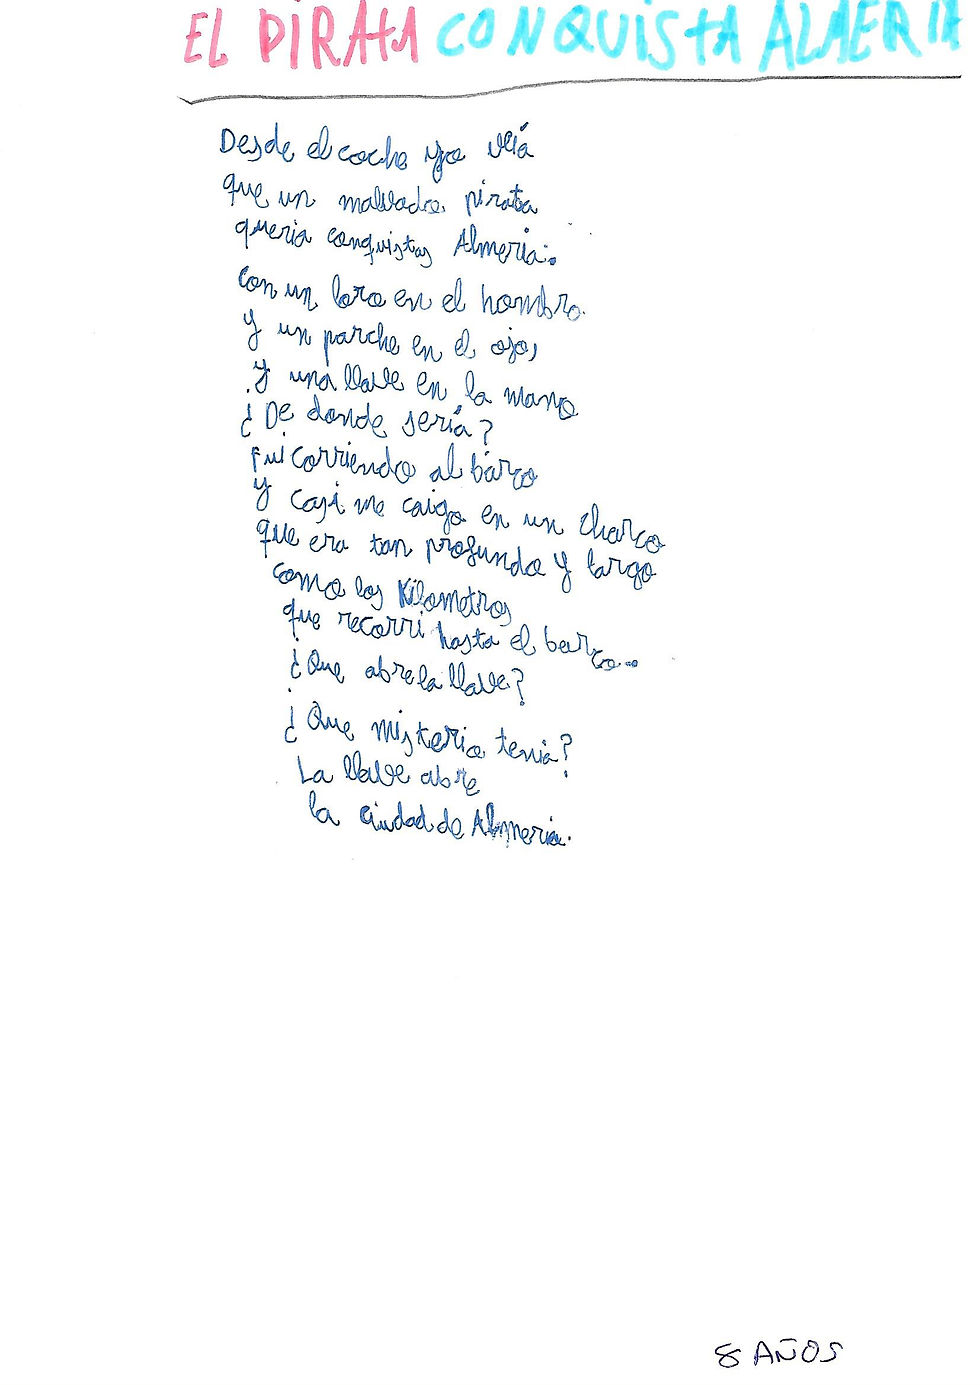 EL PIRATA CONQUISTA ALMERIA
Desde el coche yo veía
que un malvado pirata
queria conquistar Almería:
con un loro en el hombro
y un parche en el ojo,
y una llave en la mano
¿De donde sería?
Fui corriendo al bárco
y casi me caigo en un charco
que era tan profundo y largo
como los Kilometros
que recorri hasta el barco...
¿Que abre la llave?
¿Que misterio tenia?
La llave abre
la ciudad de Almeria.
8 AÑOS